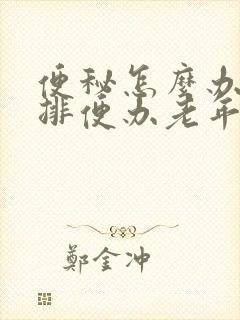 便秘怎麼办
排便办老年
鄭金冲